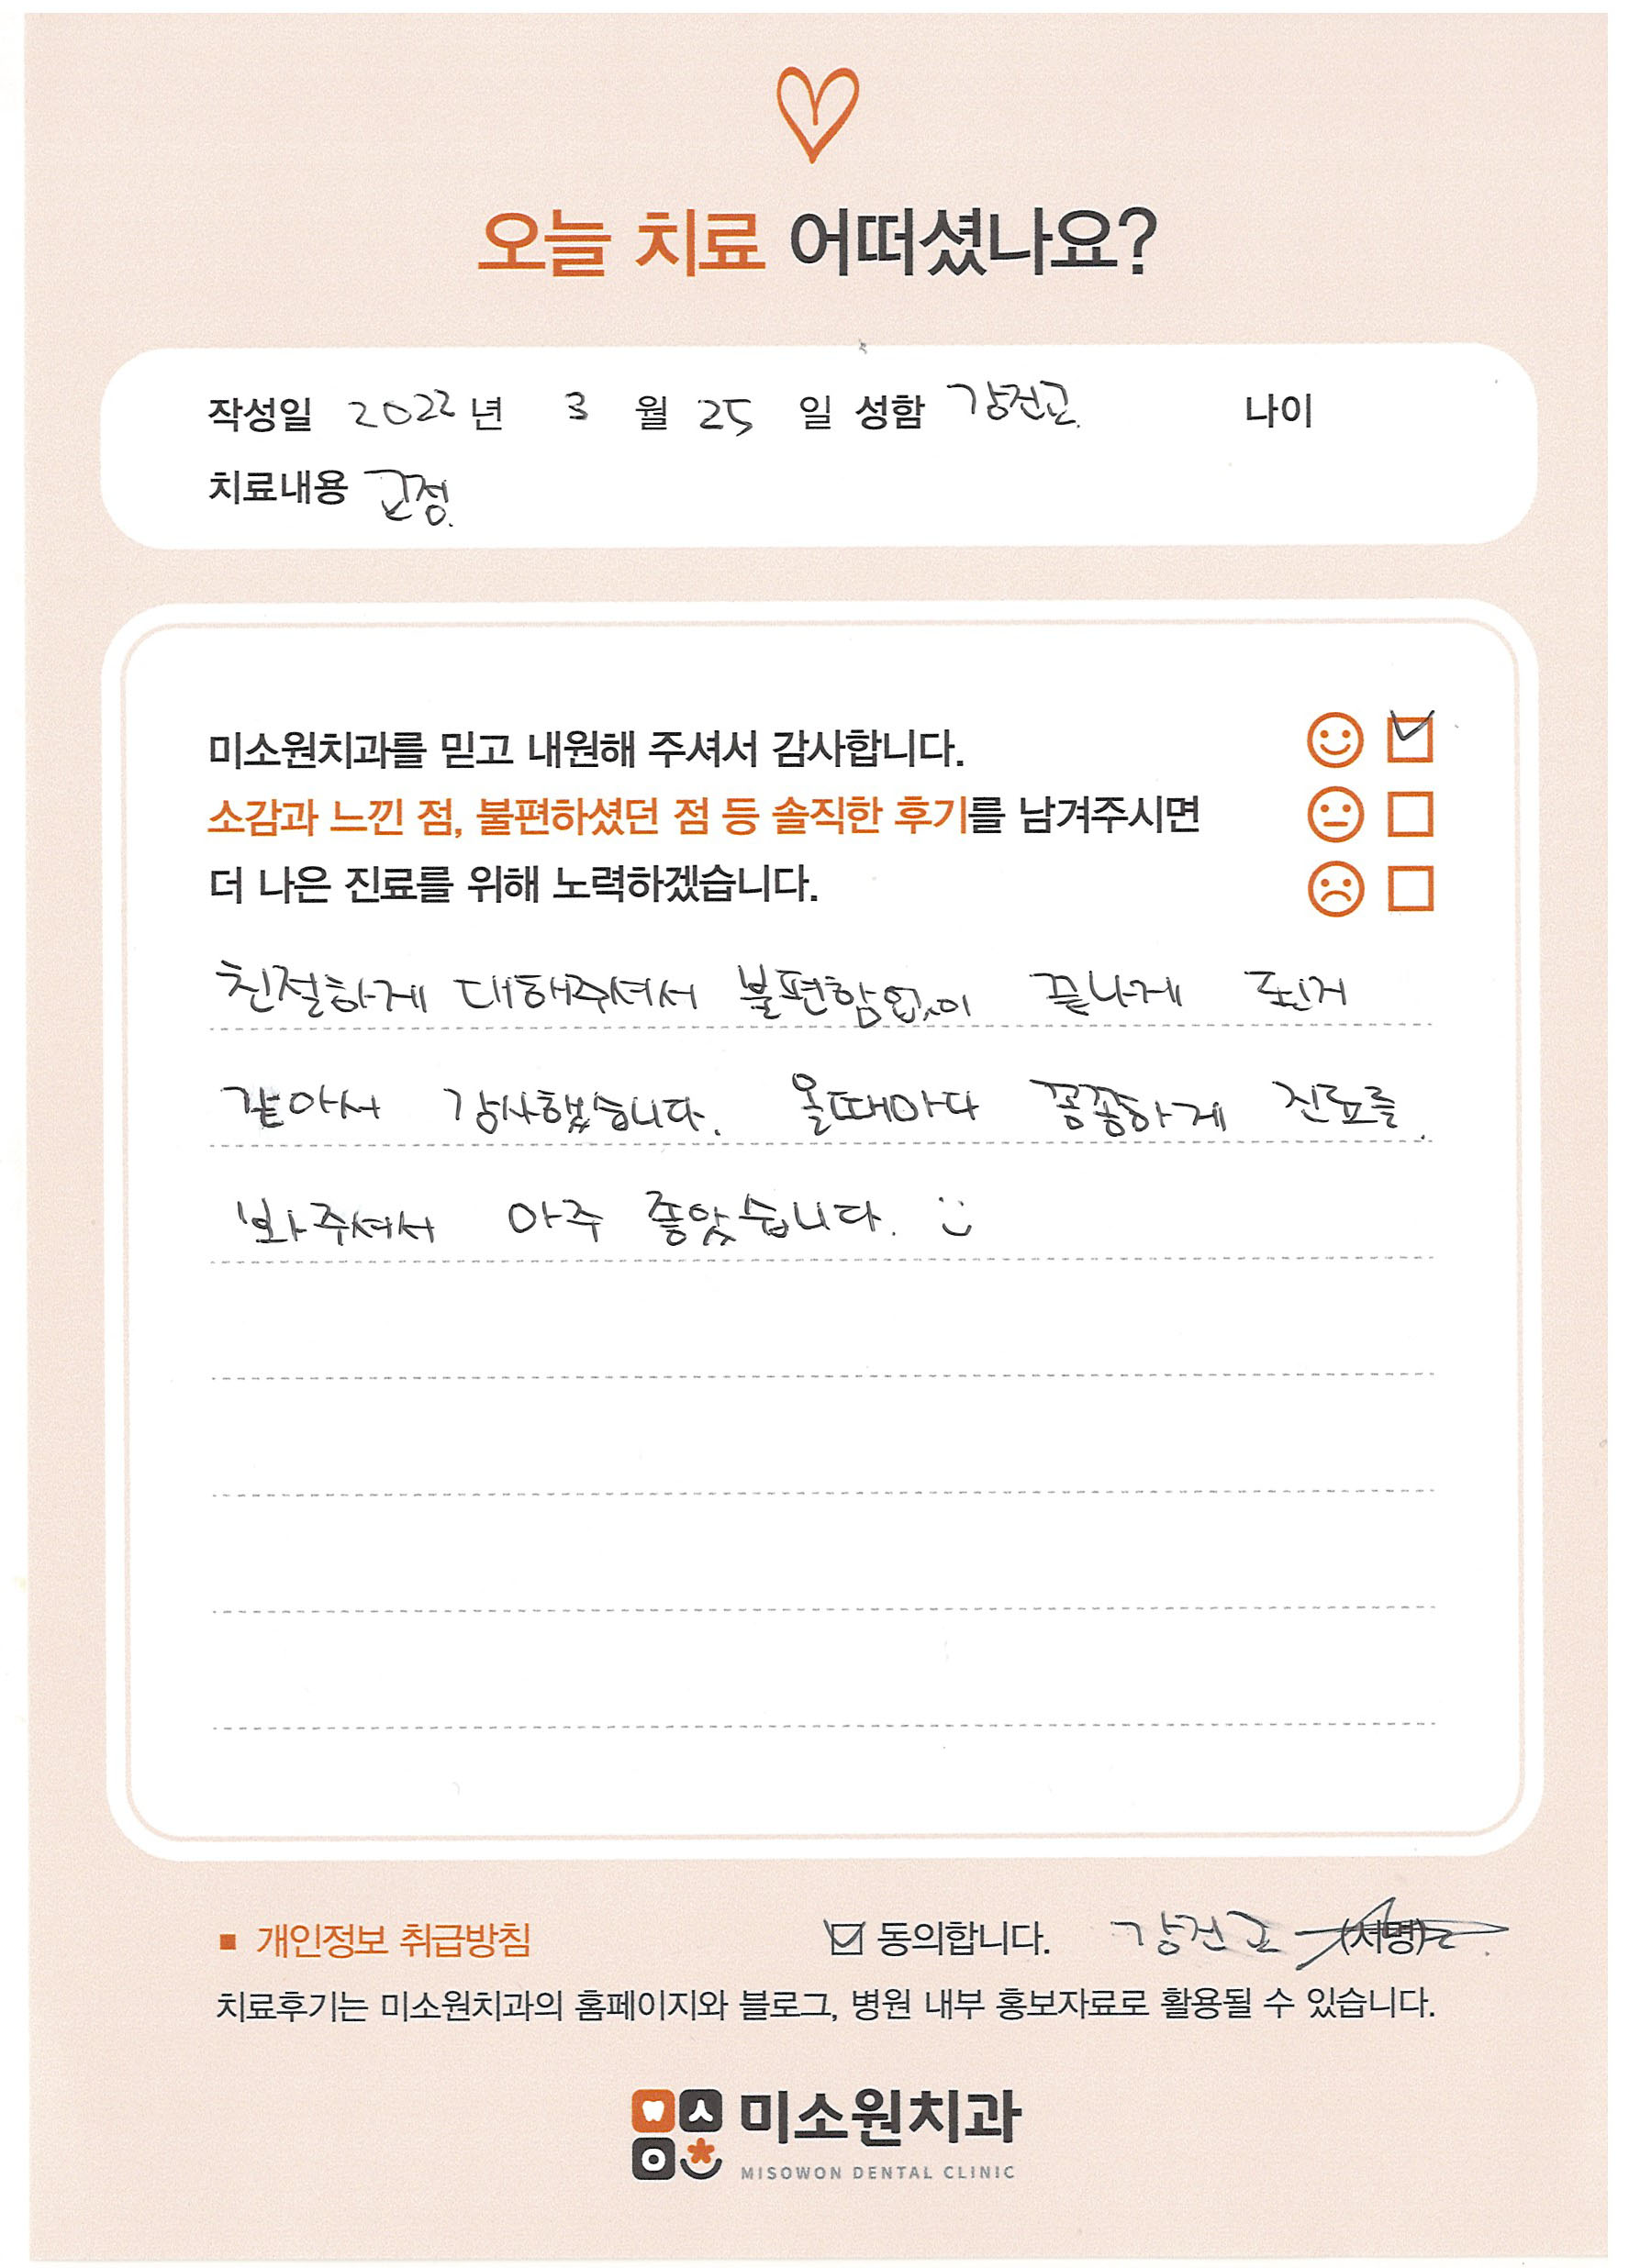 오늘 치료 어떠셨나요?
작성일 2022 년 3 월 25 일 성함 강건교 나이
치료내용 교정.
미소원치과를 믿고 내원해 주셔서 감사합니다.
소감과 느낀 점, 불편하셨던 점 등 솔직한 후기를 남겨주시면
더 나은 진료를 위해 노력하겠습니다.
친절하게 대해주셔서 불편함없이 끝나게 된거
같아서 감사했습니다. 올때마다 꼼꼼하게 진료를
봐주셔서 아주 좋았습니다. :)
■ 개인정보 취급방침 동의합니다. 강건교 (서명)
치료후기는 미소원치과의 홈페이지와 블로그, 병원 내부 홍보자료로 활용될 수 있습니다.
미소원치과
MISOWON DENTAL CLINIC